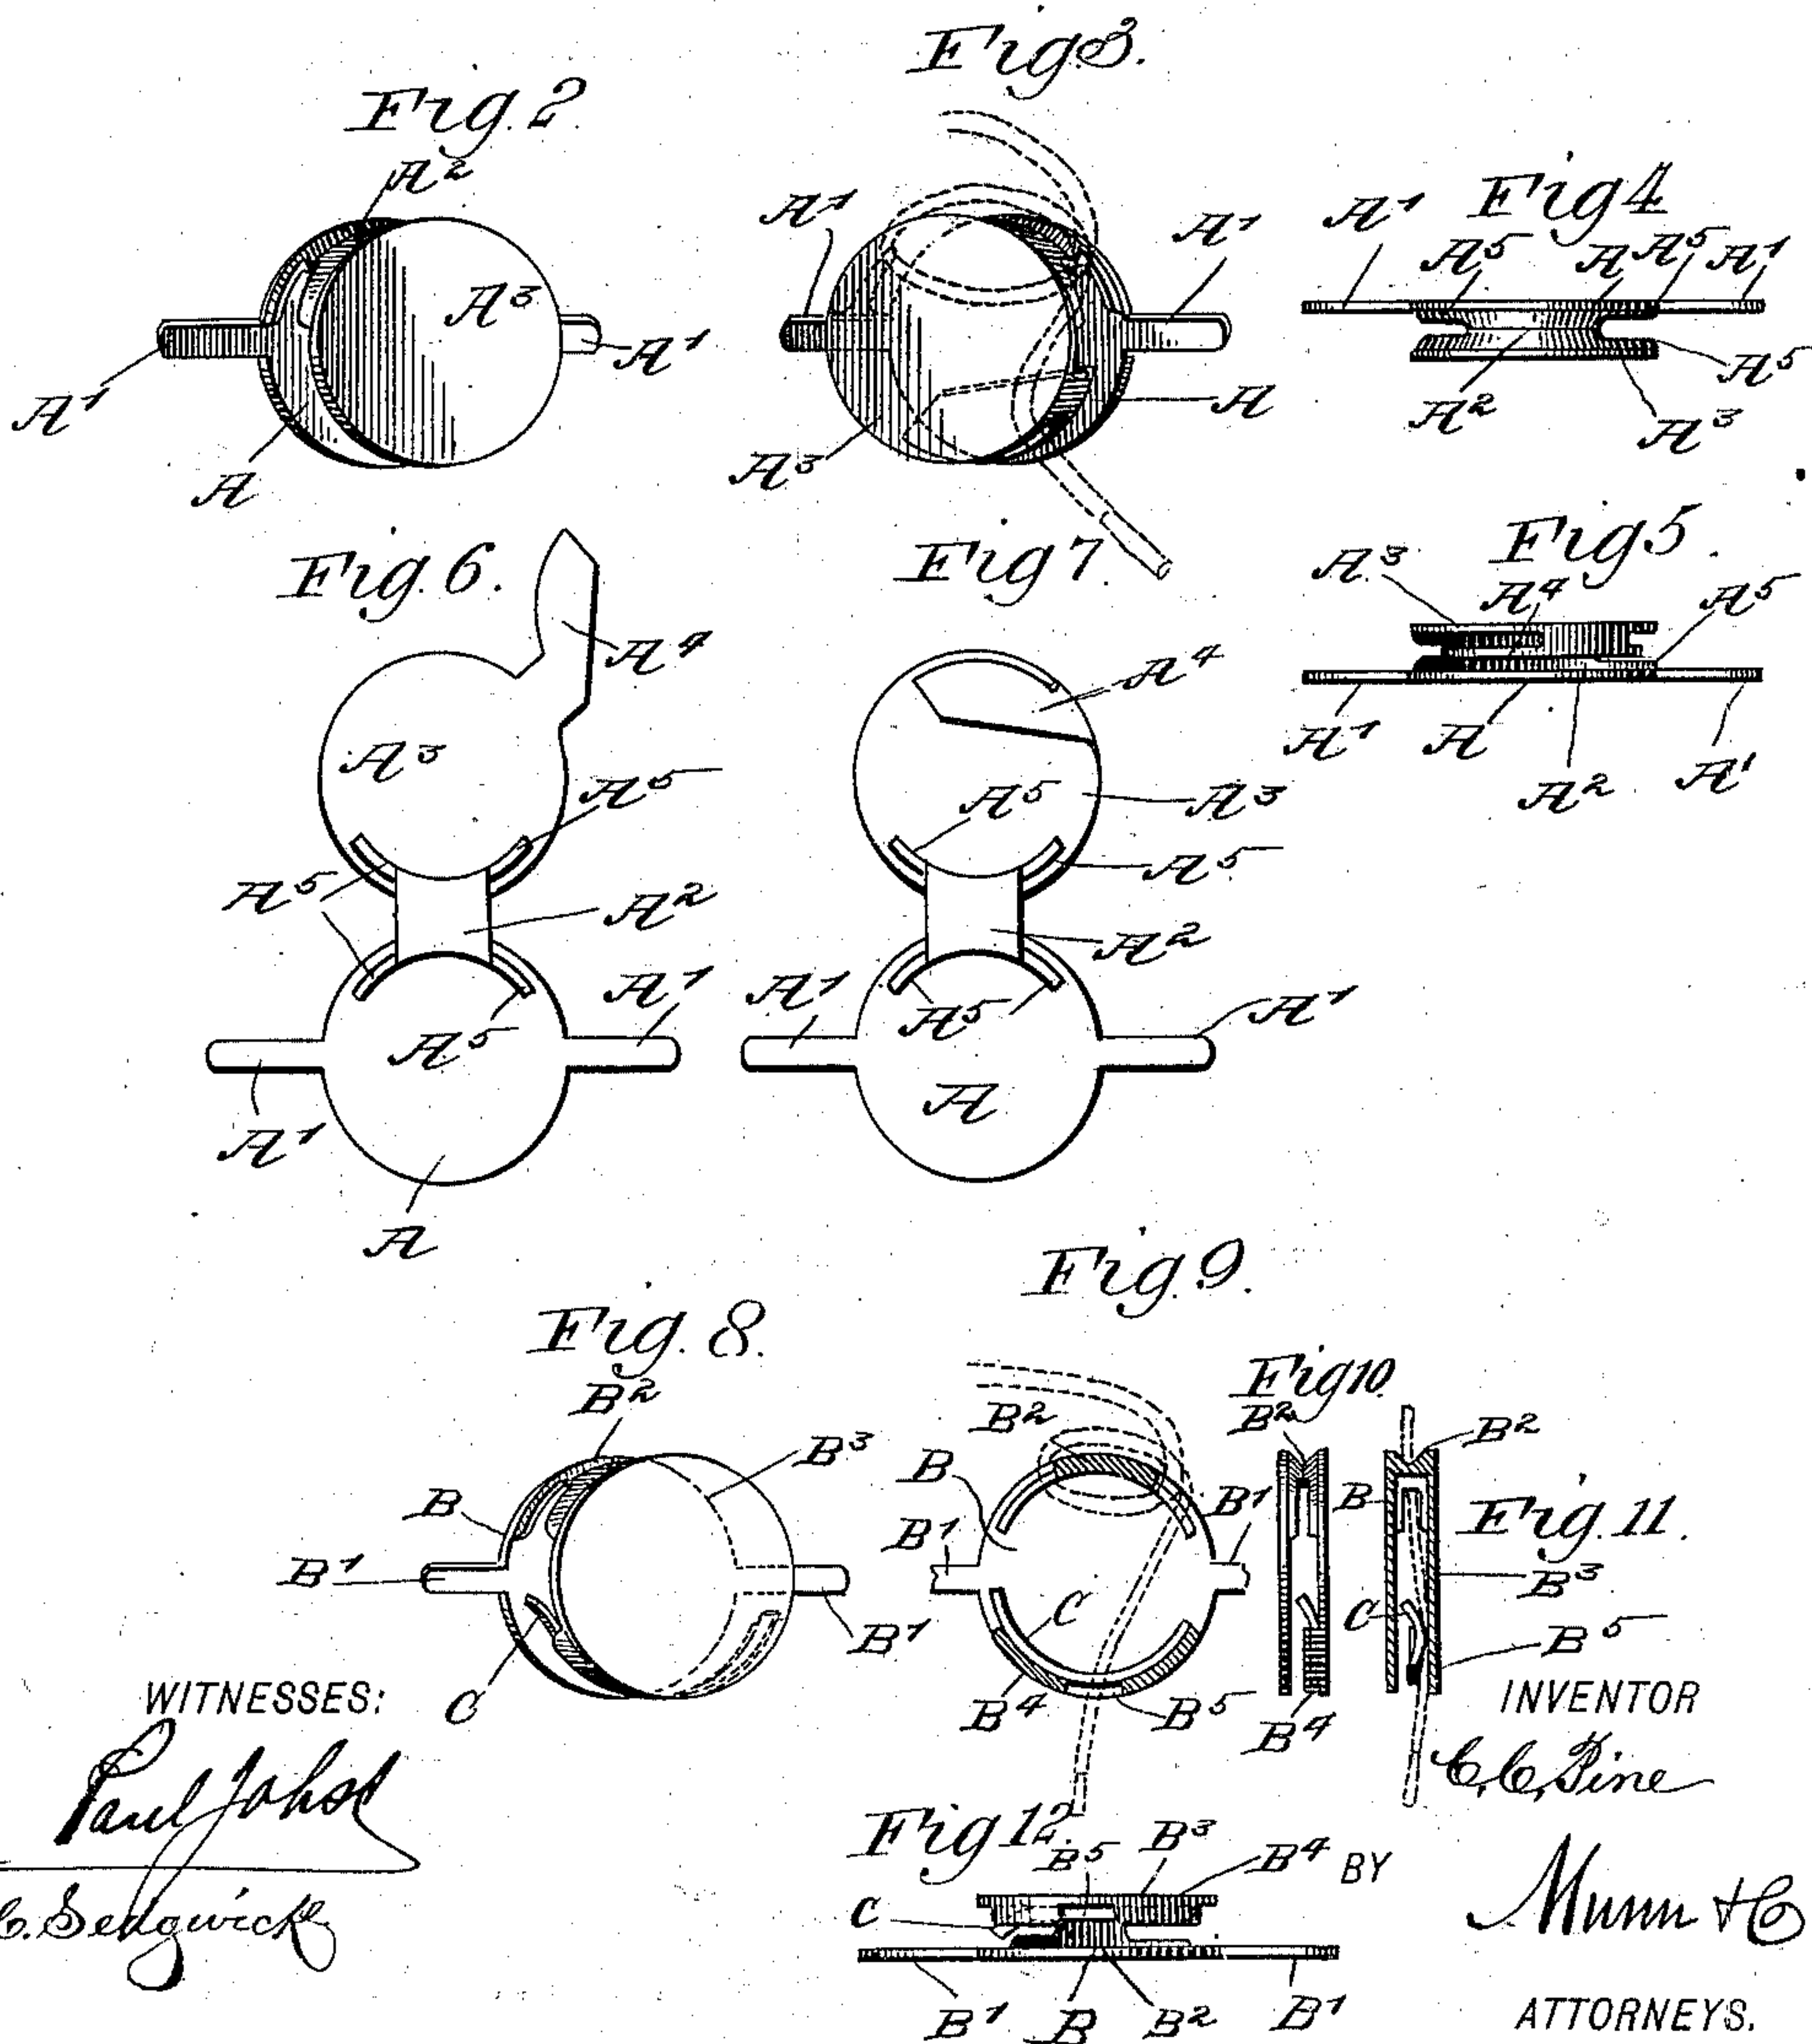 Fig. 2.
A2
A3
A1
A1
A
Fig 3.
A1
A1
A
A3
Fig 4
A1
A5
A
A5
A1
A5
A2
A3
Fig 5.
A3
A4
A5
A1
A
A2
A1
Fig. 6.
A4
A3
A5
A5
A2
A1
A5
A1
A
Fig 7.
A4
A3
A5
A5
A2
A1
A5
A1
A
Fig. 8.
B2
B3
B
B1
B1
C
Fig. 9.
B2
B
B1
B1
C
B4
B5
Fig 10.
B2
B4
Fig. 11.
B2
B
B3
C
B5
Fig 12.
B5
B3
B4
C
B1
B
B2
B1
WITNESSES:
Paul Johst
C. Sedgwick
INVENTOR
C. C. Pine
BY
Munn & Co
ATTORNEYS.